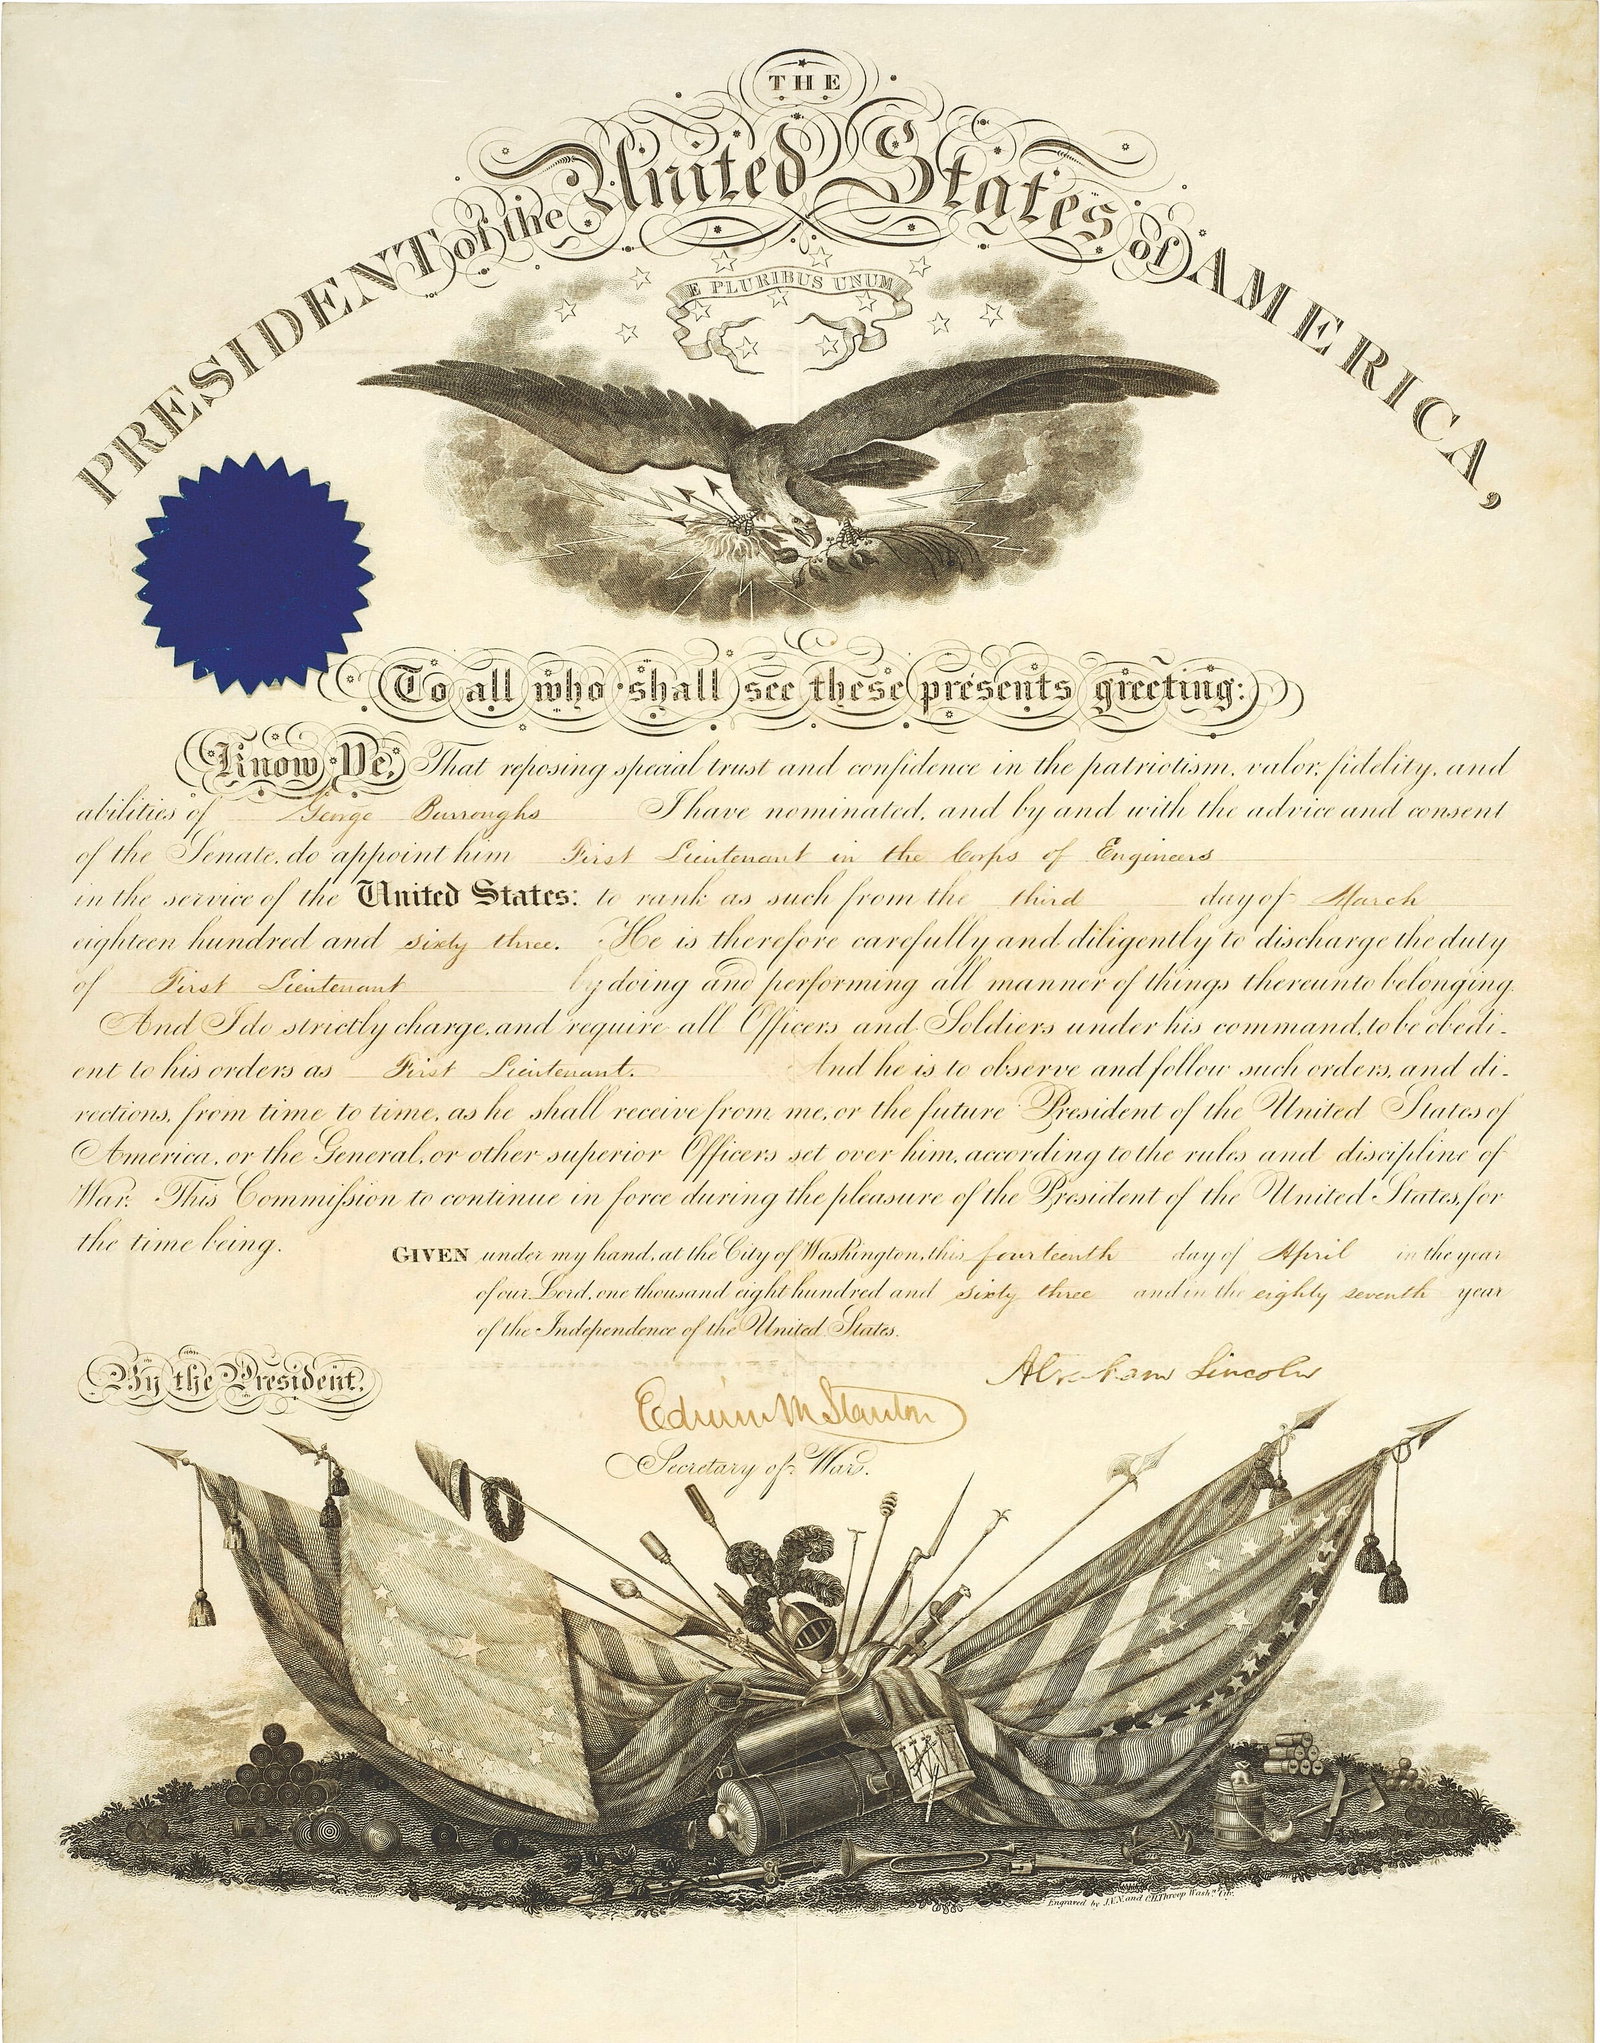 THE
PRESIDENT of the United States of AMERICA,
E PLURIBUS UNUM
To all who shall see these presents greeting:
Know Ye, That reposing special trust and confidence in the patriotism, valor, fidelity, and
abilities of George Burroughs I have nominated, and by and with the advice and consent
of the Senate, do appoint him First Lieutenant in the Corps of Engineers
in the service of the United States: to rank as such from the third day of March
eighteen hundred and sixty three. He is therefore carefully and diligently to discharge the duty
of First Lieutenant by doing and performing all manner of things thereunto belonging.
And I do strictly charge, and require all Officers and Soldiers under his command, to be obedi-
ent to his orders as First Lieutenant. And he is to observe and follow such orders, and di-
rections, from time to time, as he shall receive from me, or the future President of the United States of
America, or the General, or other superior Officers set over him, according to the rules and discipline of
War. This Commiſsion to continue in force during the pleasure of the President of the United States, for
the time being.
GIVEN under my hand, at the City of Washington, this fourteenth day of April in the year
of our Lord, one thousand eight hundred and sixty three and in the eighty seventh year
of the Independence of the United States.
By the President.
Abraham Lincoln
Edwin M Stanton
Secretary of War.
Engraved by J.V.N. and O.H. Throop Wash.n City.